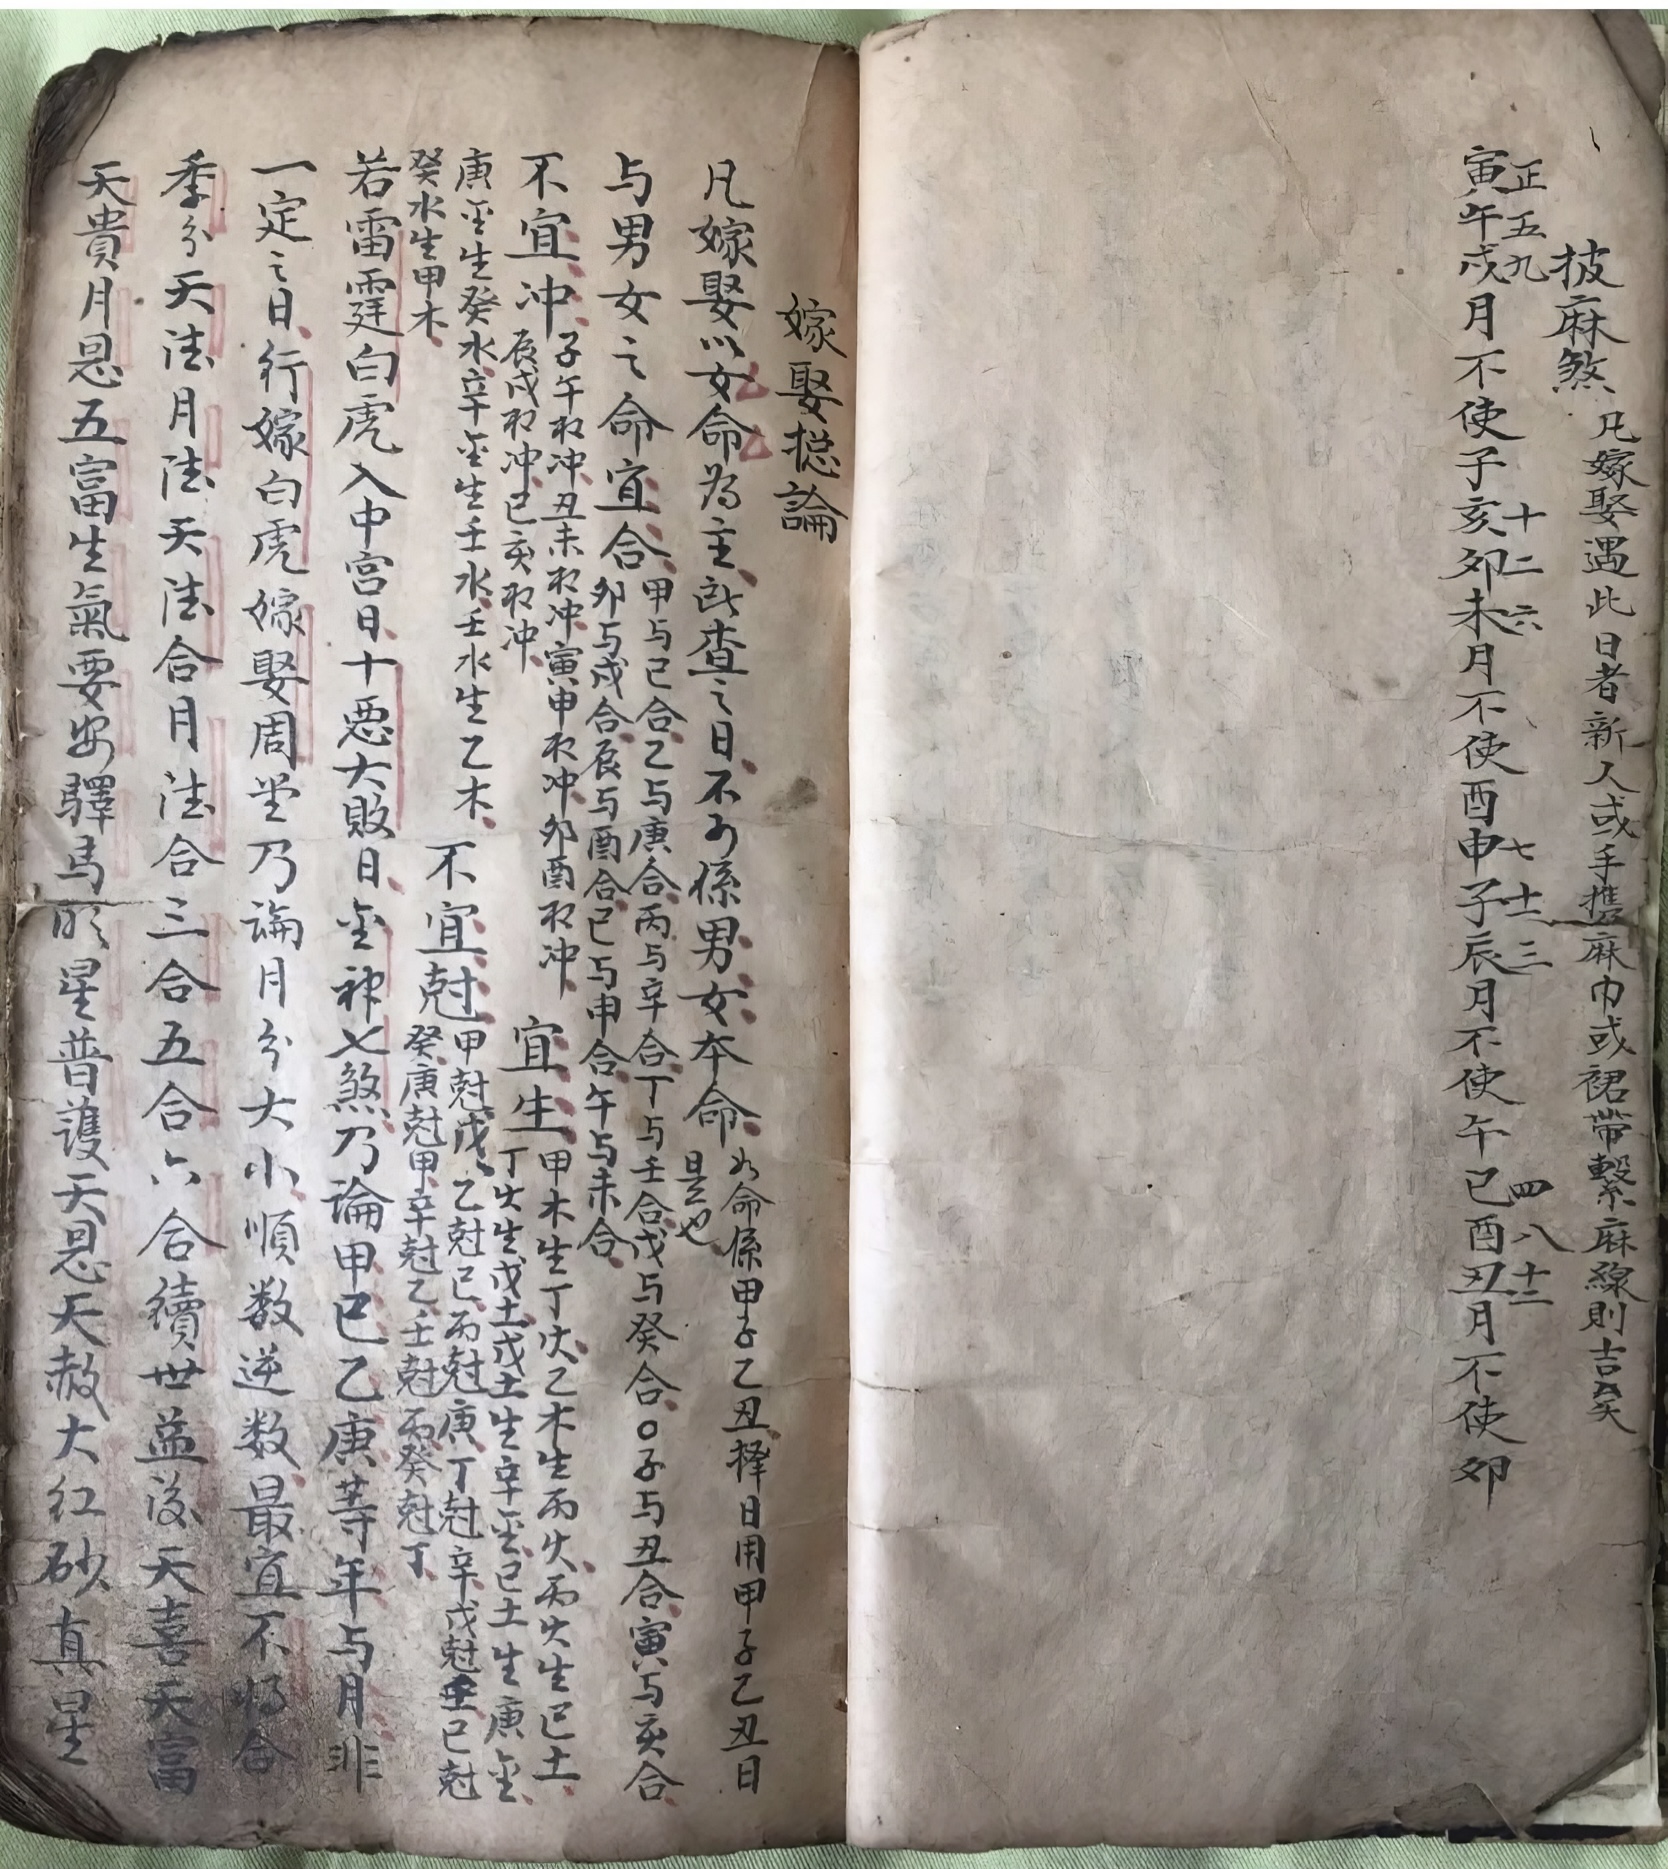 披麻煞 凡嫁娶遇此日者新人或手携麻巾或裙帶繫麻線則吉矣
正五九 十二六 七十一三 四八十二
寅午戌月不使子亥卯未月不使酉申子辰月不使午巳酉丑月不使卯
嫁娶捴論
凡嫁娶以女命為主 查之日不可係男女本命
如命係甲子乙丑擇日用甲子乙丑日
是也
与男女之命宜合
甲与己合乙与庚合丙与辛合丁与壬合戊与癸合〇子与丑合寅与亥合
卯与戌合辰与酉合巳与申合午与未合
不宜冲
子午相冲丑未相冲寅申相冲卯酉相冲
辰戌相冲巳亥相冲
宜生
甲木生丁火乙木生丙火丙火生己土
丁火生戊土戊土生辛金己土生庚金
庚金生癸水辛金生壬水壬水生乙木
癸水生甲木
不宜尅
甲尅戊乙尅己丙尅庚丁尅辛戊尅壬己尅
癸庚尅甲辛尅乙壬尅丙癸尅丁
若雷霆白虎入中宮日十惡大敗日金神七煞乃論甲己乙庚等年与月非
一定之日行嫁白虎嫁娶周堂乃論月分大小順数逆数最宜不将合
季分天德月德天德合月德合三合五合六合續世益後天喜天富
天貴月恩五富生氣要安驛馬明星普護天恩天赦大紅砂真星